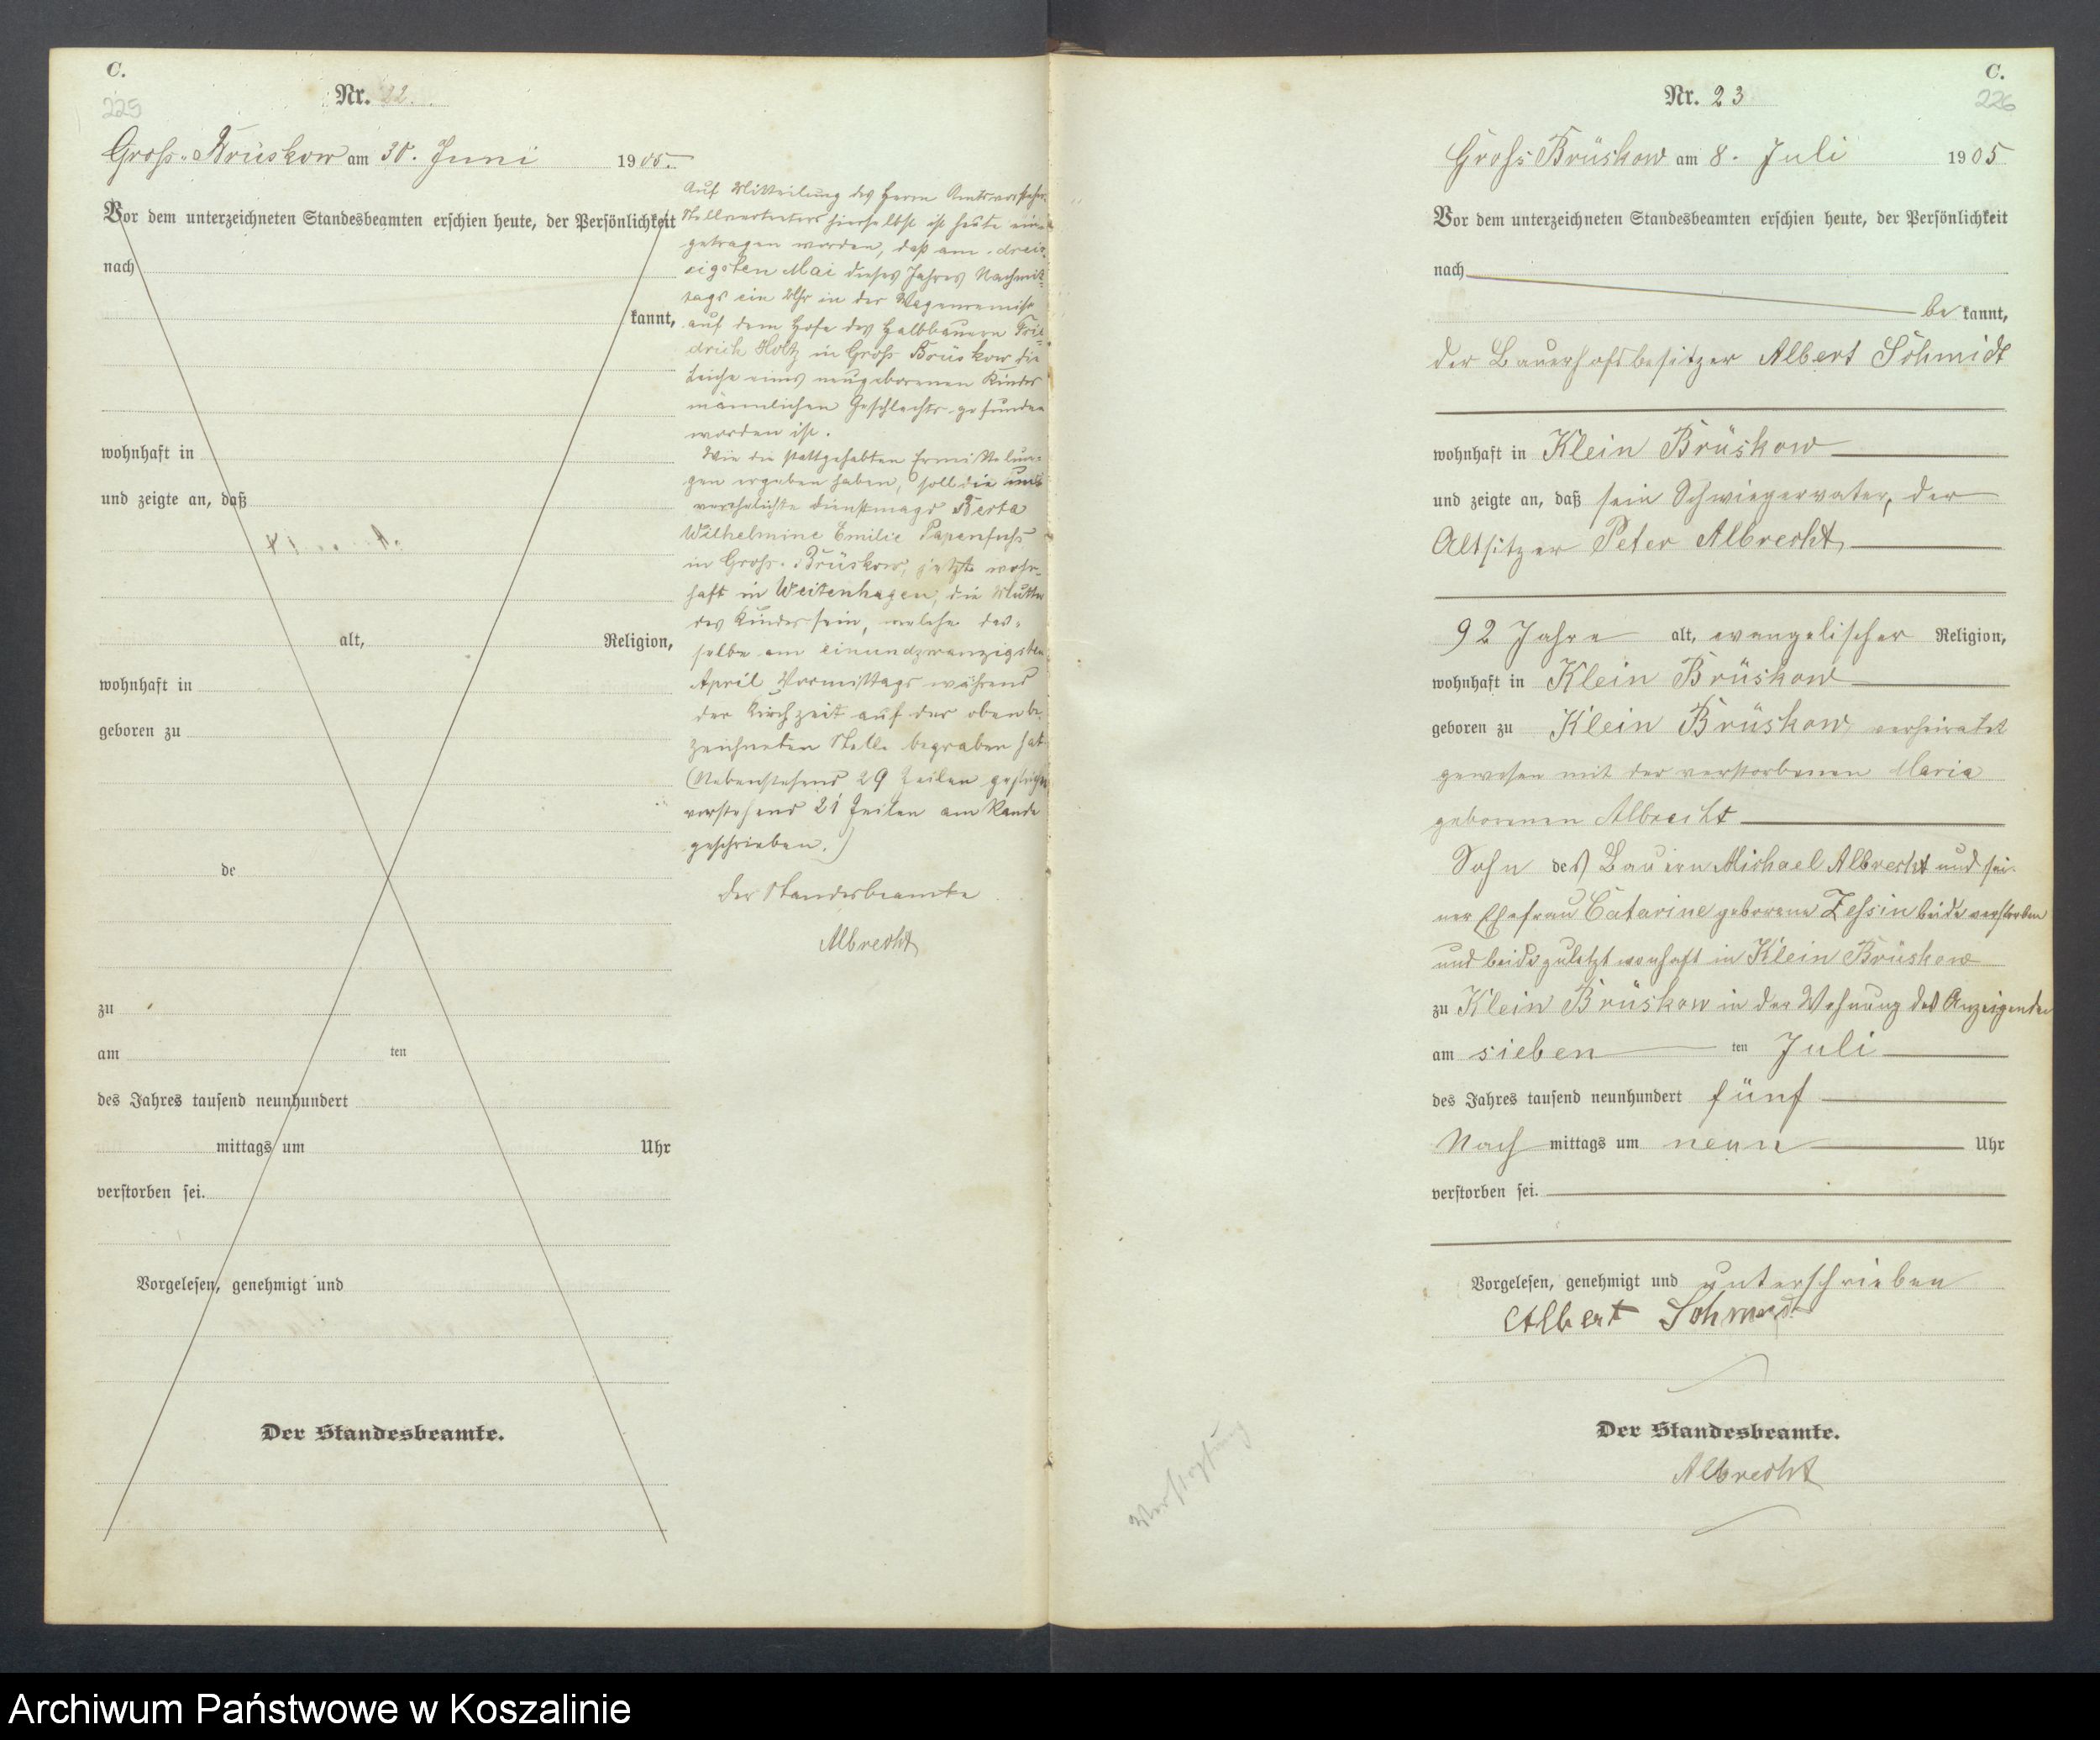 C.
225
Nr. 22.
Gross-Brüskow am 30. Juni 1905.
Vor dem unterzeichneten Standesbeamten erschien heute, der Persönlichkeit
nach
kannt,
wohnhaft in
und zeigte an, daß
alt, Religion,
wohnhaft in
geboren zu
de
zu
am ten
des Jahres tausend neunhundert
mittags um Uhr
verstorben sei.
Vorgelesen, genehmigt und
Der Standesbeamte.
Auf Mitteilung des Herrn Amtsvorsteher-
Stellvertreters hierselbst ist heute ein-
getragen worden, daß am dreis-
sigsten Mai dieses Jahres Nachmit-
tags ein Uhr in der Wagenremise
auf dem Hofe des Halbbauern Frie-
drich Holtz in Gross Brüskow die
Leiche eines neugeborenen Kindes
männlichen Geschlechts gefunden
worden ist.
Wie die stattgehabten Ermittelun-
gen ergeben haben, soll die unv-
verehelichte Dienstmagd Berta
Wilhelmine Emilie Papenfuhs
in Gross-Brüskow, jetzt wohn-
haft in Weitenhagen, die Mutter
des Kindes sein, welche das-
selbe am einundzwanzigsten
April Vormittags während
der Kirchzeit auf der oben be-
zeichneten Stelle begraben hat
(Nebenstehend 29 Zeilen gestrichen
vorstehend 21 Zeilen am Rande
geschrieben.)
Der Standesbeamte
Albrecht
C.
226
Nr. 23
Gross Brüskow am 8. Juli 1905
Vor dem unterzeichneten Standesbeamten erschien heute, der Persönlichkeit
nach
be kannt,
der Bauerhofsbesitzer Albert Schmidt
wohnhaft in Klein Brüskow
und zeigte an, daß sein Schwiegervater, der
Altsitzer Peter Albrecht,
92 Jahre alt, evangelischer Religion,
wohnhaft in Klein Brüskow
geboren zu Klein Brüskow verheiratet
gewesen mit der verstorbenen Maria
geborenen Albrecht
Sohn des Bauern Michael Albrecht und sei-
ner Ehefrau Catarine geborene Zessin beide verstorben
und beide zuletzt wonhaft in Klein Brüskow
zu Klein Brüskow in der Wohnung des Anzeigenden
am sieben ten Juli
des Jahres tausend neunhundert fünf
Nach mittags um neun Uhr
verstorben sei.
Vorgelesen, genehmigt und unterschrieben
Albert Schmidt
Der Standesbeamte.
Albrecht
Archiwum Państwowe w Koszalinie